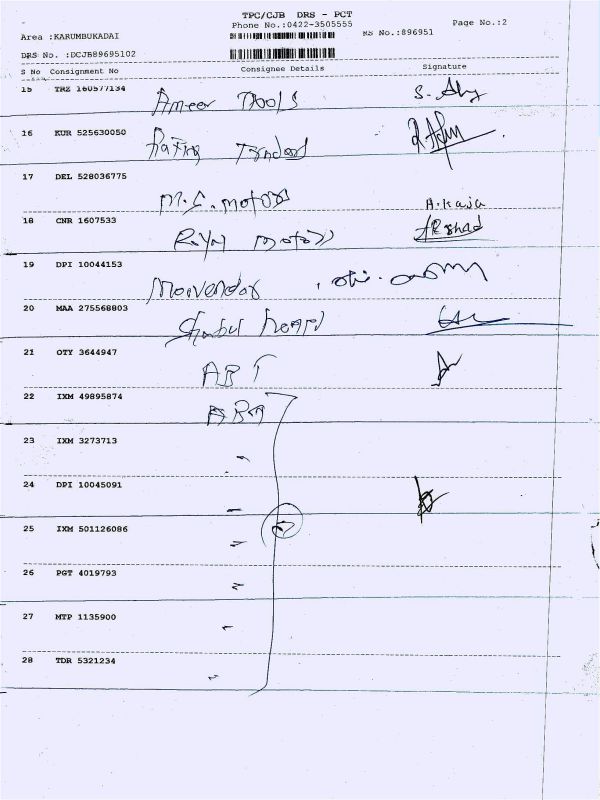 TPC/CJB DRS - PCT
Phone No.:0422-3505555 Page No.:2
Area :KARUMBUKADAI NS No.:896951
DRS No. :DCJB89695102
S No Consignment No Consignee Details Signature
15 TRZ 160577134 Ameer Tools S.
16 KUR 525630050
17 DEL 528036775 M.S. motors A.kaja
18 CNR 1607533 Royal motors Arshad
19 DPI 10044153
20 MAA 275568803
21 OTY 3644947 ABT
22 IXM 49895874 ABT
23 IXM 3273713
24 DPI 10045091
25 IXM 501126086
26 PGT 4019793
27 MTP 1135900
28 TDR 5321234